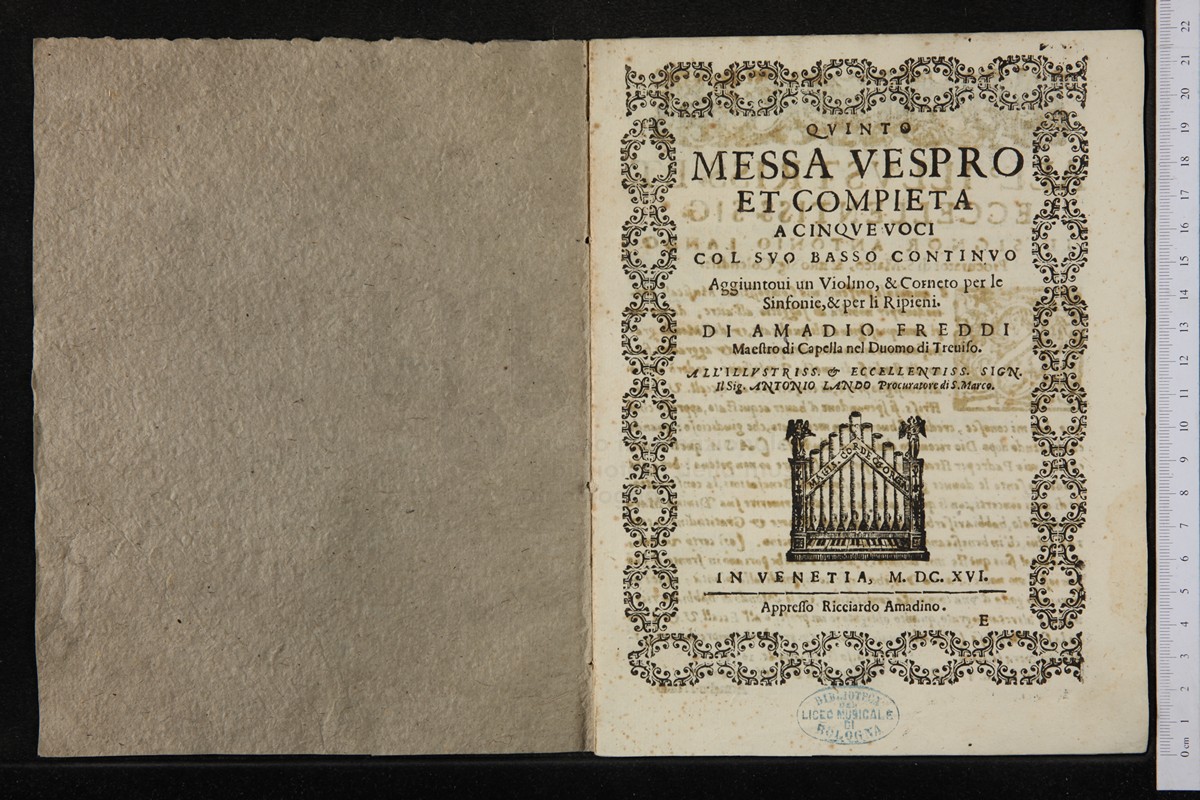 QVINTO
MESSA VESPRO
ET COMPIETA
A CINQVE VOCI
COL SVO BASSO CONTINVO
Aggiuntoui un Violino, & Corneto per le
Sinfonie, & per li Ripieni.
DI AMADIO FREDDI
Maeſtro di Capella nel Duomo di Treuiſo.
ALL'ILLVSTRISS. & ECCELLENTISS. SIGN.
Il Sig. ANTONIO LANDO Procuratore di S. Marco.
MAGIS CORDE QVAM ORGANO
IN VENETIA, M. DC. XVI.
Appreſſo Ricciardo Amadino.
E
BIBLIOTECA
DEL
LICEO MUSICALE
DI
BOLOGNA
0 cm 1 2 3 4 5 6 7 8 9 10 11 12 13 14 15 16 17 18 19 20 21 22